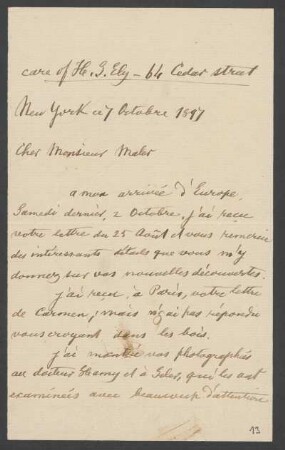 care of H. G. Ely - 64 Cedar street
New York ce 7 Octobre 1897
Cher Monsieur Maler
a mon arrivée d'Europe,
Samedi dernier, 2 Octobre, j'ai reçu
votre lettre du 25 Août et vous remercie
des intéressants détails que vous m'y
donnez sur vos nouvelles découvertes.
j'ai reçu, à Paris, votre lettre
de Carmen; mais n'y ai pas répondre
vous croyant dans les bois.
j'ai montré vos photographies
au docteur Hamy et à qui les ont
examinées avec beaucoup d'attention
13